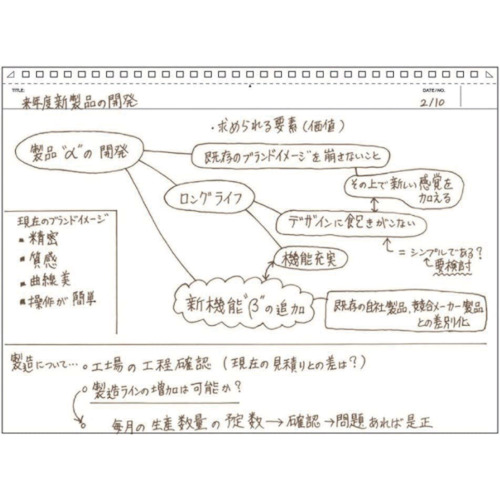 TITLE:
来年度新製品の開発
DATE/NO.
2/10
・求められる要素(価値)
製品"α"の開発
既存のブランドイメージを崩さないこと
その上で新しい感覚を
加える
ロングライフ
デザインに飽きがこない
=シンプルである?
要検討
機能充実
現在のブランドイメージ
・精密
・質感
・曲線美
・操作が簡単
新機能"β"の追加
既存の自社製品、競合メーカー製品
との差別化
製造について…。工場の工程確認(現在の見積りとの差は?)
製造ラインの増加は可能か?
毎月の生産数量の予定数→確認→問題あれば是正